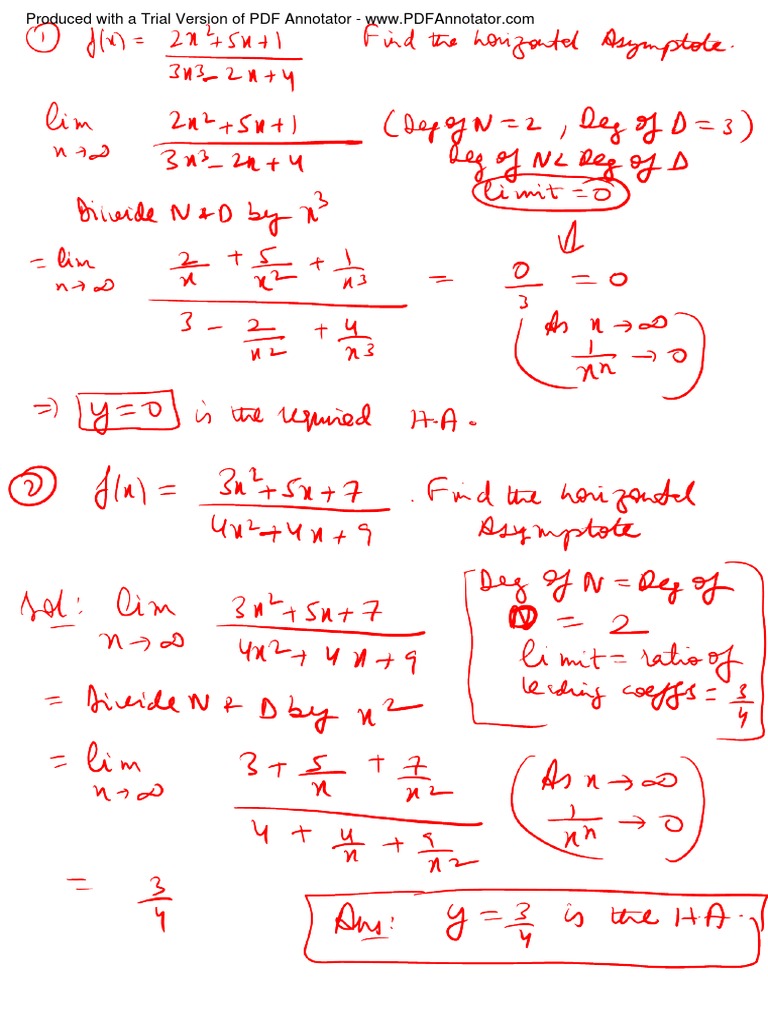 Produced with a Trial Version of PDF Annotator - www.PDFAnnotator.com
① f(x) = (2x²+5x+1)/(3x³-2x+4) Find the horizontal Asymptote.
lim x→∞ (2x²+5x+1)/(3x³-2x+4) (Deg of N=2, Deg of D=3)
Deg of N< Deg of D
limit=0
Divide N & D by x³
= lim x→∞ (2/x + 5/x² + 1/x³)/(3 - 2/x² + 4/x³) = 0/3 = 0
(As x→∞
1/xⁿ → 0)
⇒ y=0 is the required H.A.
② f(x) = (3x²+5x+7)/(4x²+4x+9). Find the horizontal
Asymptote
Sol: lim x→∞ (3x²+5x+7)/(4x²+4x+9)
[Deg of N = Deg of
D = 2
limit = ratio of
leading coeffs = 3/4]
= Divide N & D by x²
= lim x→∞ (3 + 5/x + 7/x²)/(4 + 4/x + 9/x²) (As x→∞
1/xⁿ → 0)
= 3/4
Ans: y = 3/4 is the H.A.